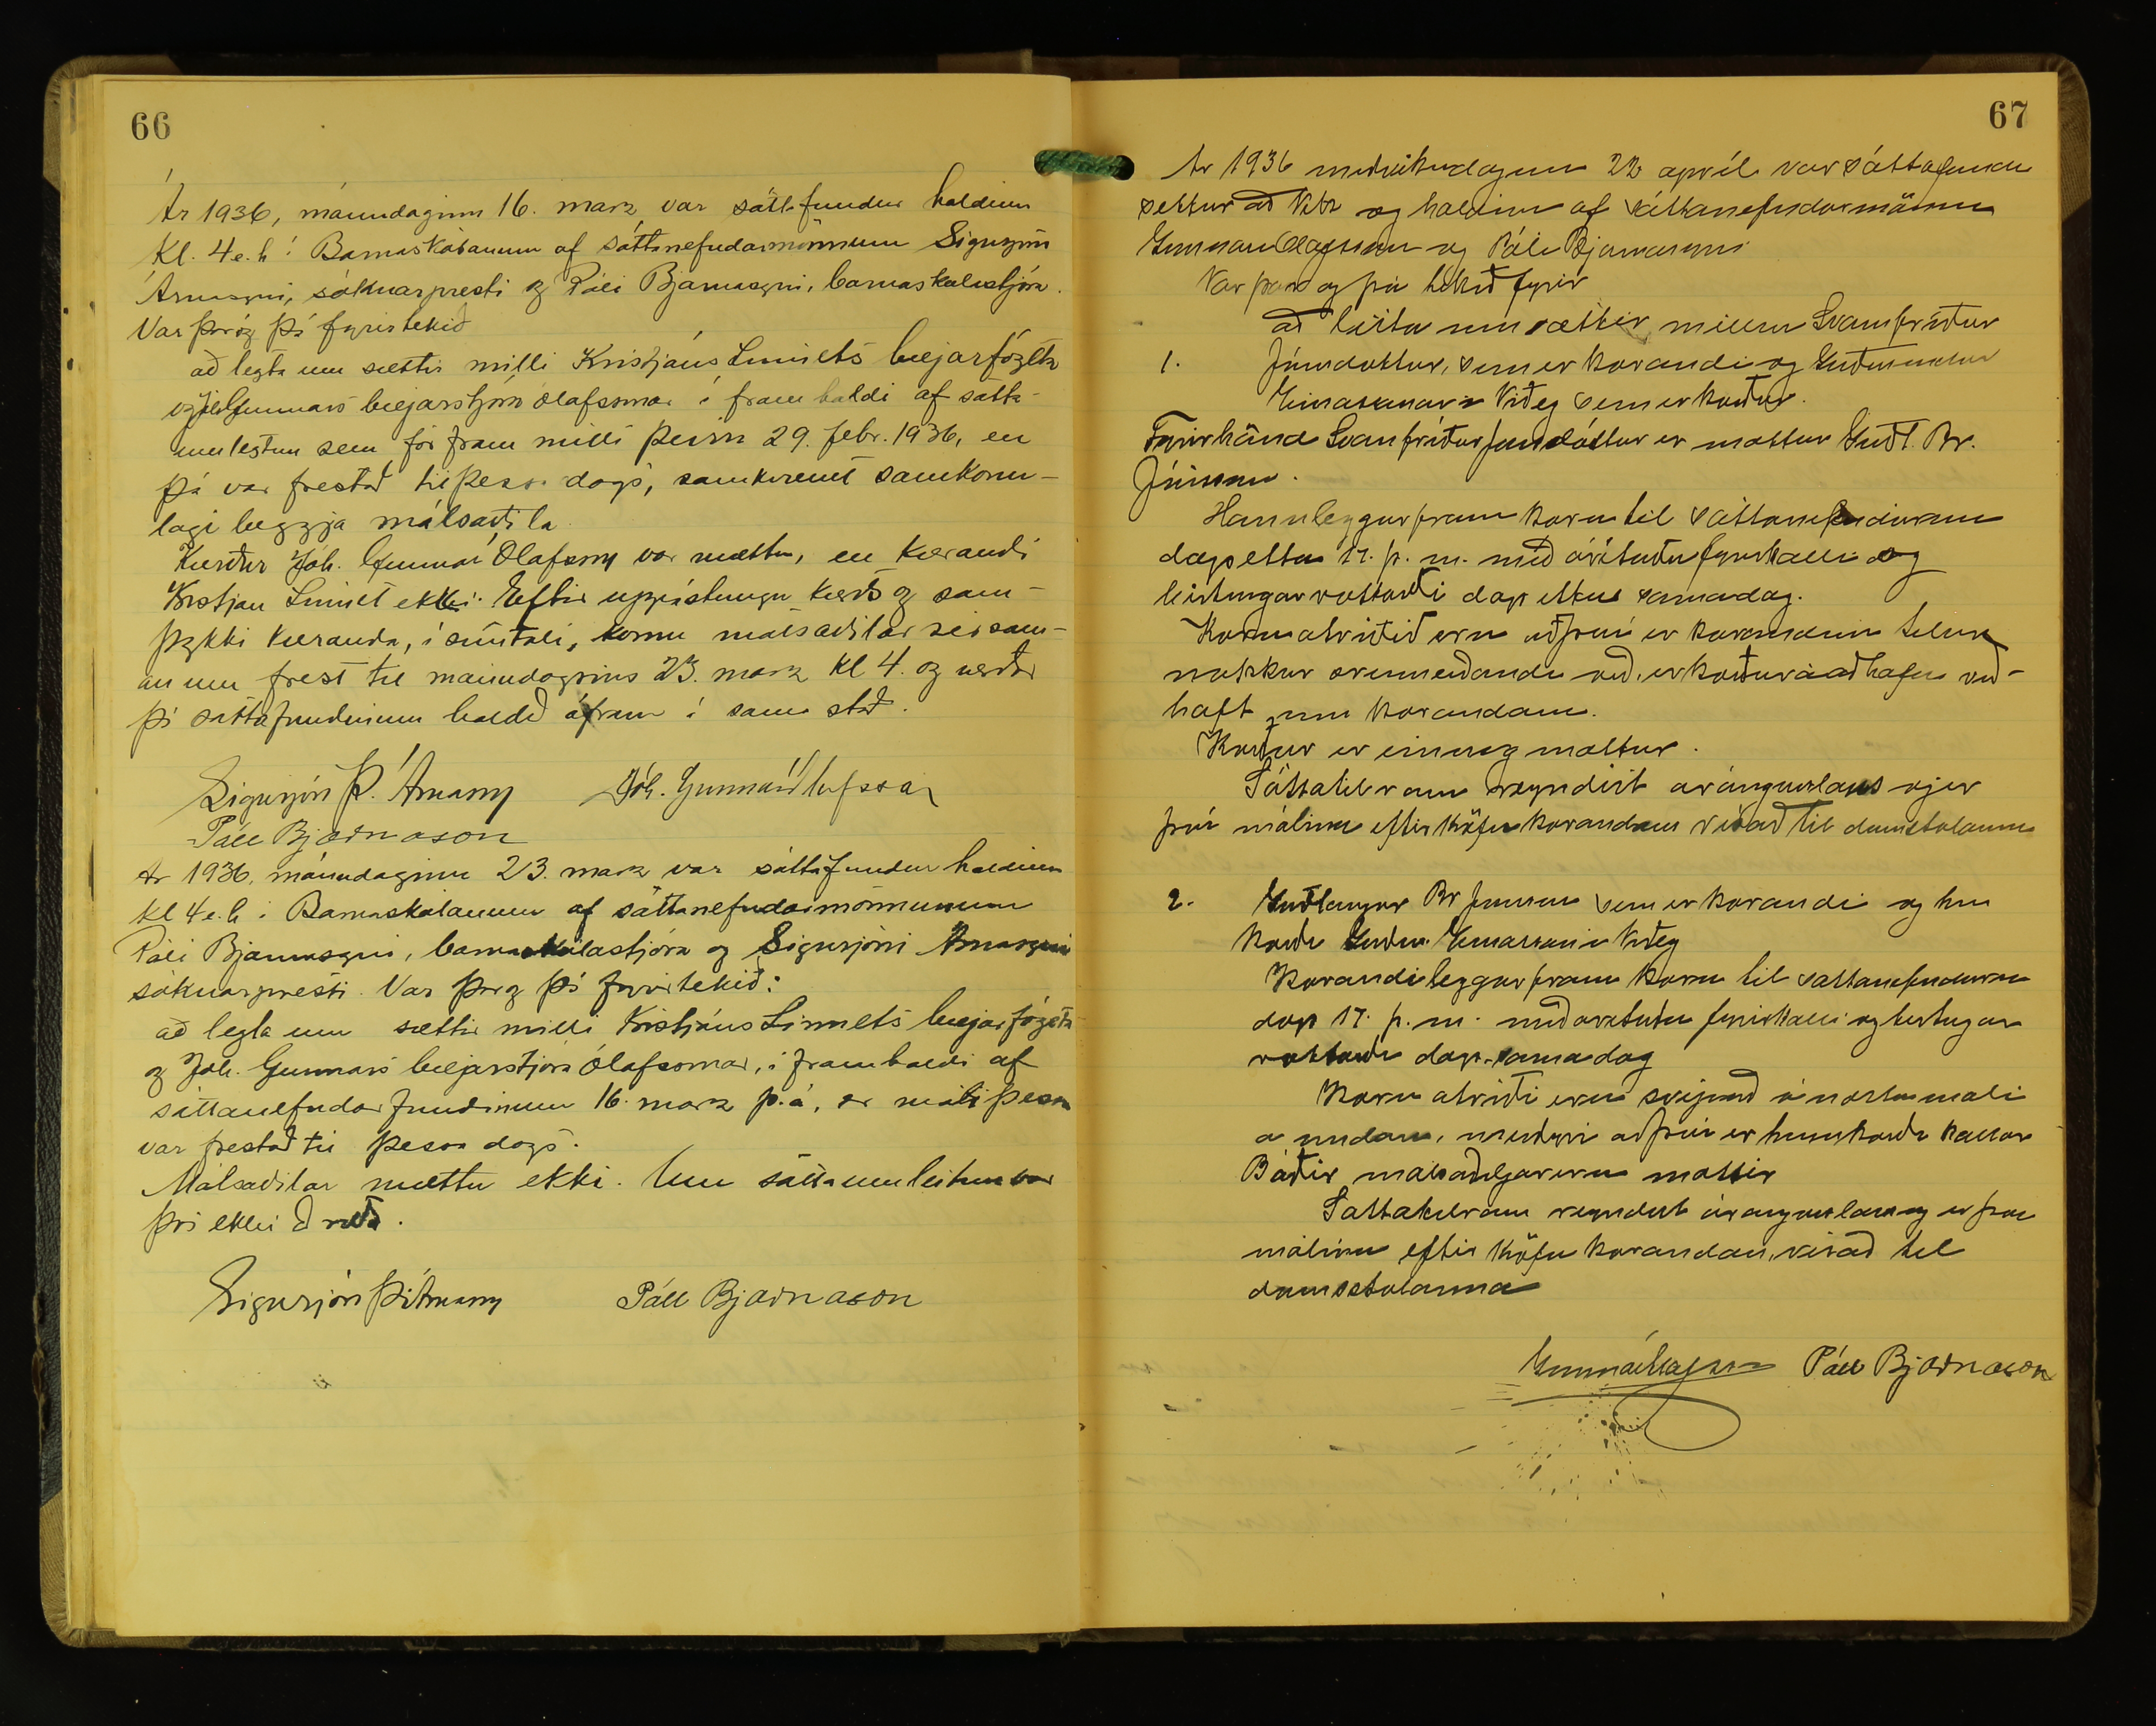 66
Ár 1936, mánudaginn 16. marz var sáttafundur haldinn
kl. 4 e.h. í Barnaskólanum af sáttanefndarmönnum Sigurjóni
Árnasyni, sóknarpresti og Páli Bjarnasyni, barnaskólastjóra.
Var þar og þá fyrirtekið
að leyta um sættir milli Kristjáns Linnets bæjarfógeta
og Jóh. Gunnars bæjarstjóra Ólafssonar í framhaldi af sátta-
umleitun sem fór fram milli þeirra 29. febr. 1936, en
þá var frestað til þessa dags, samkvæmt samkomu-
lagi beggja málsaðila.
Kærður Jóh. Gunnar Ólafsson var mættur, en kærandi
Kristján Linnet ekki. Eftir uppástungu kærðs og sam-
þykki kæranda, í símtali, komu málsaðilar sér sam-
an um frest til mánudagsins 23. marz kl 4. og verður
þá sáttafundinum haldið áfram í sama stað.
Sigurjón Þ. Árnason Jóh. Gunnar Ólafsson
Páll Bjarnason
Ár 1936, mánudaginn 23. marz var sáttafundur haldinn
kl 4 e.h. í Barnaskólanum af sáttanefndarmönnunum
Páli Bjarnasyni, barnaskólastjóra og Sigurjóni Árnasyni
sóknarpresti. Var þar og þá fyrirtekið:
að leyta um sættir milli Kristjáns Linnets bæjarfógeta
og Jóh. Gunnars bæjarstjóra Ólafssonar, í framhaldi af
sáttanefndarfundinum 16. marz þ.á, er máli þessu
var frestað til þessa dags.
Málsaðilar mættu ekki. Um sáttaumleitun var
því ekki að ræða.
Sigurjón Þ. Árnason Páll Bjarnason
67
Ár 1936 miðvikudaginn 22 apríl var sáttafundur
settur að og haldinn af sáttanefndarmönnum
Gunnari Ólafssyni og Páli Bjarnasyni
Var þar og þá tekið fyrir
að leita um sættir millum Svanfríðar
1. Jónsdóttur, sem er kærandi og Guðmundar
Einarssonar í Viðey sem er kærður.
Fyrir hönd Svanfríðar Jónsdóttur er mættur Guðl. Br.
Jónsson.
Hann leggur fram kæru til sáttanefndarinnar
dagsetta 17. þ.m. með áritaðri fyrirkalli og
birtingarvottorði dagsettu sama dag.
Kæruatriðið eru að því er kærandinn telur
nokkur ærumeiðandi orð, er kærður á að hafa við-
haft um kærandann.
Kærður er einnig mættur.
Sáttatilraun reyndist árangurslaus og er
því málinu eftir kröfu kærandans vísað til dómstólanna
2. Guðlaugur Br Jónsson sem er kærandi og hin
kærði Guðm. Einarsson í Viðey
Kærandi leggur fram kæru til sáttanefndarinnar
dags 17. þ.m. með áritaðri fyrirkalli og birtingar
vottorði dags. sama dag
Kæru atriði eru svipuð í næsta máli
á undan, meiðyrði að því er hinn kærði kallar
Báðir málsaðiljar eru mættir
Sáttatilraun reyndist árangurslaus og er því
málinu eftir kröfu kærandans, vísað til
dómstólanna
Gunnar Ólafsson Páll Bjarnason